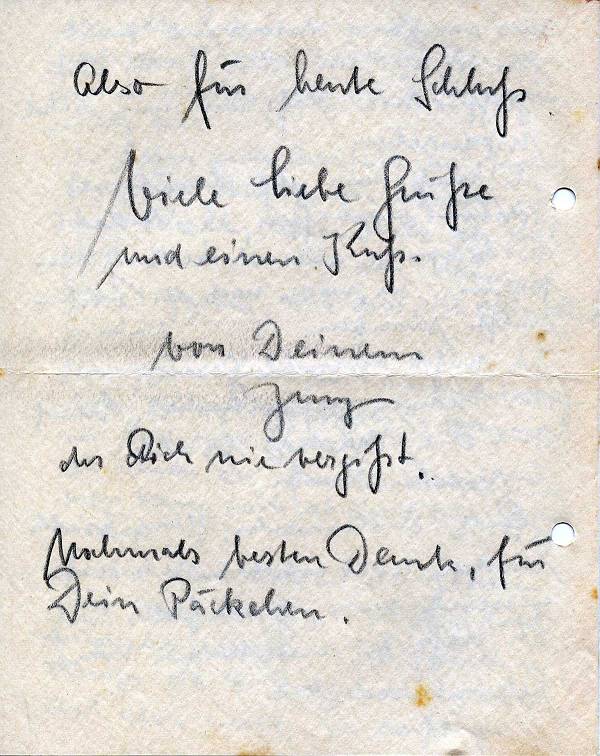 Also für heute Schluß
Viele liebe Grüße
und einen Kuß.
von Deinem
Jung
der Dich nie vergißt.
Nochmals besten Dank, für
Dein Päckchen.